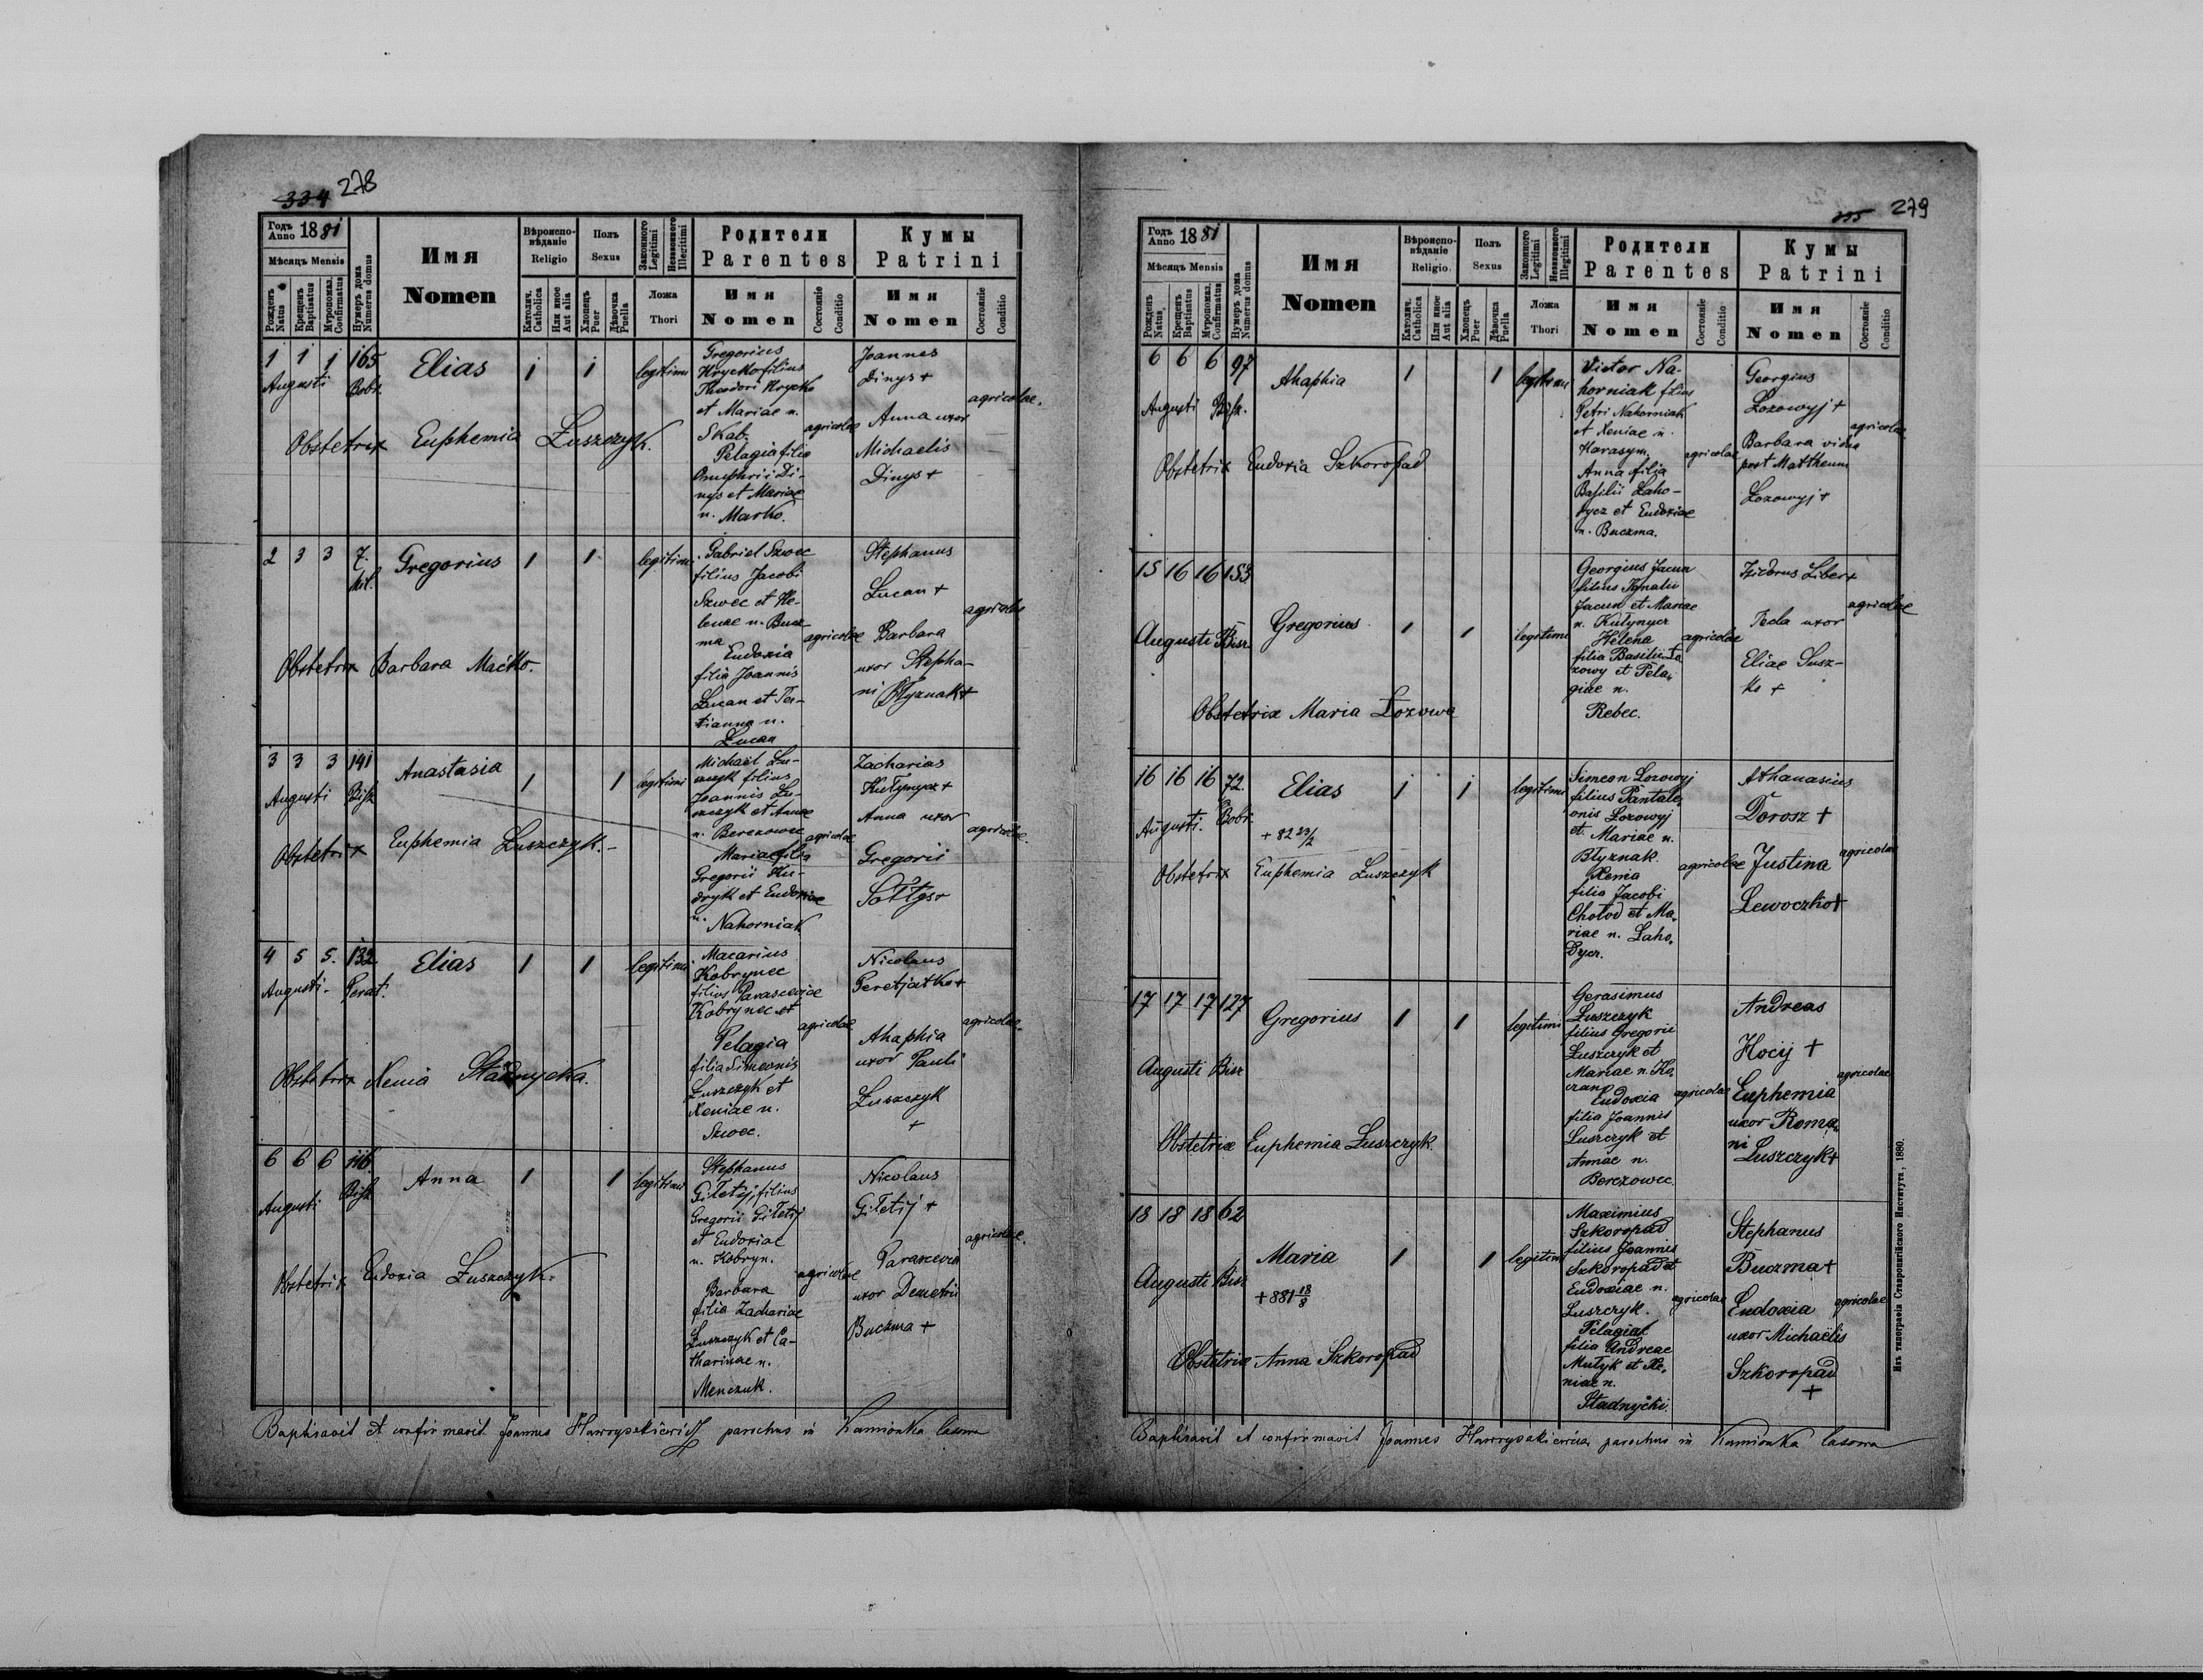 334 278
Годъ Anno 1881
Мѣсяцъ Mensis
Рожденъ Natus
Крещенъ Baptisatus
Мѵропомаз. Confirmatus
Нумеръ дома Numerus domus
Имя
Nomen
Вѣроисповѣданіе
Religio
Католич. Catholica
Или иное Aut alia
Полъ
Sexus
Хлопецъ Puer
Дѣвочка Puella
Законного Legitimi
Незаконного Illegitimi
Ложа
Thori
Родители
Parentes
Имя
Nomen
Состояніе
Conditio
Кумы
Patrini
Имя
Nomen
Состояніе
Conditio
1 1 1 165
Augusti Bobr.
Elias
1 1
legitimi
Gregorius
Hryckofilius
Theodori Hrycko
et Mariae n.
Skab.
Pelagia filia
Onuphrii Di-
nys et Mariae
n. Marko.
agricolae
Joannes
Dinys +
Anna uxor
Michaelis
Dinys +
agricolae.
Obstetrix Euphemia Łuszczyk.
2 3 3 7.
Gregorius
1 1
legitimi
Gabriel Szwec
filius Jacobi
Szwec et He-
lenae n. Bucz-
ma
Eudoxia
filia Joannis
Lucan et Ta-
tianna n.
Lucan
agricolae
Stephanus
Lucan +
Barbara
uxor Stepha-
ni Błyznak +
agricolae
Obstetrix Barbara Maćko.
3 3 3 141
Augusti
Anastasia
1 1
legitimi
Michael Łu-
szczyk filius
Joannis Łu-
szczyk et Annae
n. Berezowec
Maria filia
Gregorii Ku-
dryk et Eudoxiae
n. Nahorniak
agricolae
Zacharias
Kutynycz +
Anna uxor
Gregorii
Sołtys +
agricolae.
Obstetrix Euphemia Łuszczyk.-
4 5 5. 132
Augusti. Perat.
Elias
1 1
legitimi
Macarius
Kobrynec
filius Parasceviae
Kobrynec et
Pelagia
filia Simeonis
Łuszczyk et
Xeniae n.
Szwec.
agricolae
Nicolaus
Peretjatko +
Ahaphia
uxor Pauli
Łuszczyk
+
agricolae.
Obstetrix Xenia Stadnycka.
6 6 6 116
Augusti
Anna
1 1
legitimi
Stephanus
Giletij, filius
Gregorii Giletij
et Eudoxiae
n. Kobryn.
Barbara
filia Zachariae
Łuszczyk et Ca-
tharinae n.
Menczuk.
agricolae
Nicolaus
Giletij +
Parascevia
uxor Demetrii
Buczma +
agricolae.
Obstetrix Eudoxia Łuszczyk.
Baptisavit et confirmavit Joannes parochus in Kamionka lasowa
279
Годъ Anno 1881
Мѣсяцъ Mensis
Рожденъ Natus
Крещенъ Baptisatus
Мѵропомаз. Confirmatus
Нумеръ дома Numerus domus
Имя
Nomen
Вѣроисповѣданіе
Religio.
Католич. Catholica
Или иное Aut alia
Полъ
Sexus
Хлопецъ Puer
Дѣвочка Puella
Законного Legitimi
Незаконного Illegitimi
Ложа
Thori
Родители
Parentes
Имя
Nomen
Состояніе
Conditio
Кумы
Patrini
Имя
Nomen
Состояніе
Conditio
6 6 6 97
Augusti
Ahaphia
1 1
legitimi
Victor Na-
horniak filius
Petri Nahorniak
et Xeniae n.
Harasym,
Anna filia
Basilii Laho-
dycz et Eudoxiae
n. Buczma.
agricolae
Georgius
Lozowyj +
Barbara vidua
post Mattheum
Lozowyj +
agricolae
Obstetrix Eudoxia Szkoropad
15 16 16 153
Augusti Bisz.
Gregorius.
1 1
legitimi
Georgius Jacun
filius Ignatii
Jacun et Mariae
n. Kutynycz
Helena
filia Basilii Ło
zowy et Pela-
giae n.
Rebec.
agricolae
Izidorus Liber +
Tecla uxor
Eliae Susz-
ko +
agricolae
Obstetrix Maria Łozowa
16 16 16 72.
Augusti. Bobr.
Elias
+ 82 23/2
1 1
legitimi
Simeon Lozowyj
filius Pantale-
onis Lozowyj
et Mariae n.
Błyznak.
Xenia
filia Jacobi
Chołod et Ma-
riae n. Laho-
dycz.
agricolae
Athanasius
Dorosz +
Justina
Lewoczko +
agricolae
Obstetrix Euphemia Łuszczyk
17 17 17 127
Augusti Bisz
Gregorius
1 1
legitimi
Gerasimus
Łuszczyk
filius Gregorii
Łuszczyk et
Mariae n. Ko-
czan
Eudoxia
filia Joannis
Łuszczyk et
Annae n.
Berezowec.
agricolae
Andreas
Hocij +
Euphemia
uxor Roma-
ni
Łuszczyk +
agricolae
Obstetrix Euphemia Łuszczyk.
18 18 18 62
Augusti Bisz
Maria
+ 881 18/8
1 1
legitimi
Maximius
Szkoropad
filius Joannis
Szkoropad et
Eudoxiae n.
Łuszczyk.
Pelagiae
filia Andreae
Mułyk et Xe-
niae n.
Stadnycki.
agricolae
Stephanus
Buczma +
Eudoxia
uxor Michaëlis
Szkoropad
+
agricolae
Obstetrix Anna Szkoropad
Baptisavit et confirmavit Joannes parochus in Kamionka lasowa
Изъ типографіи Ставропигійского Института, 1880.